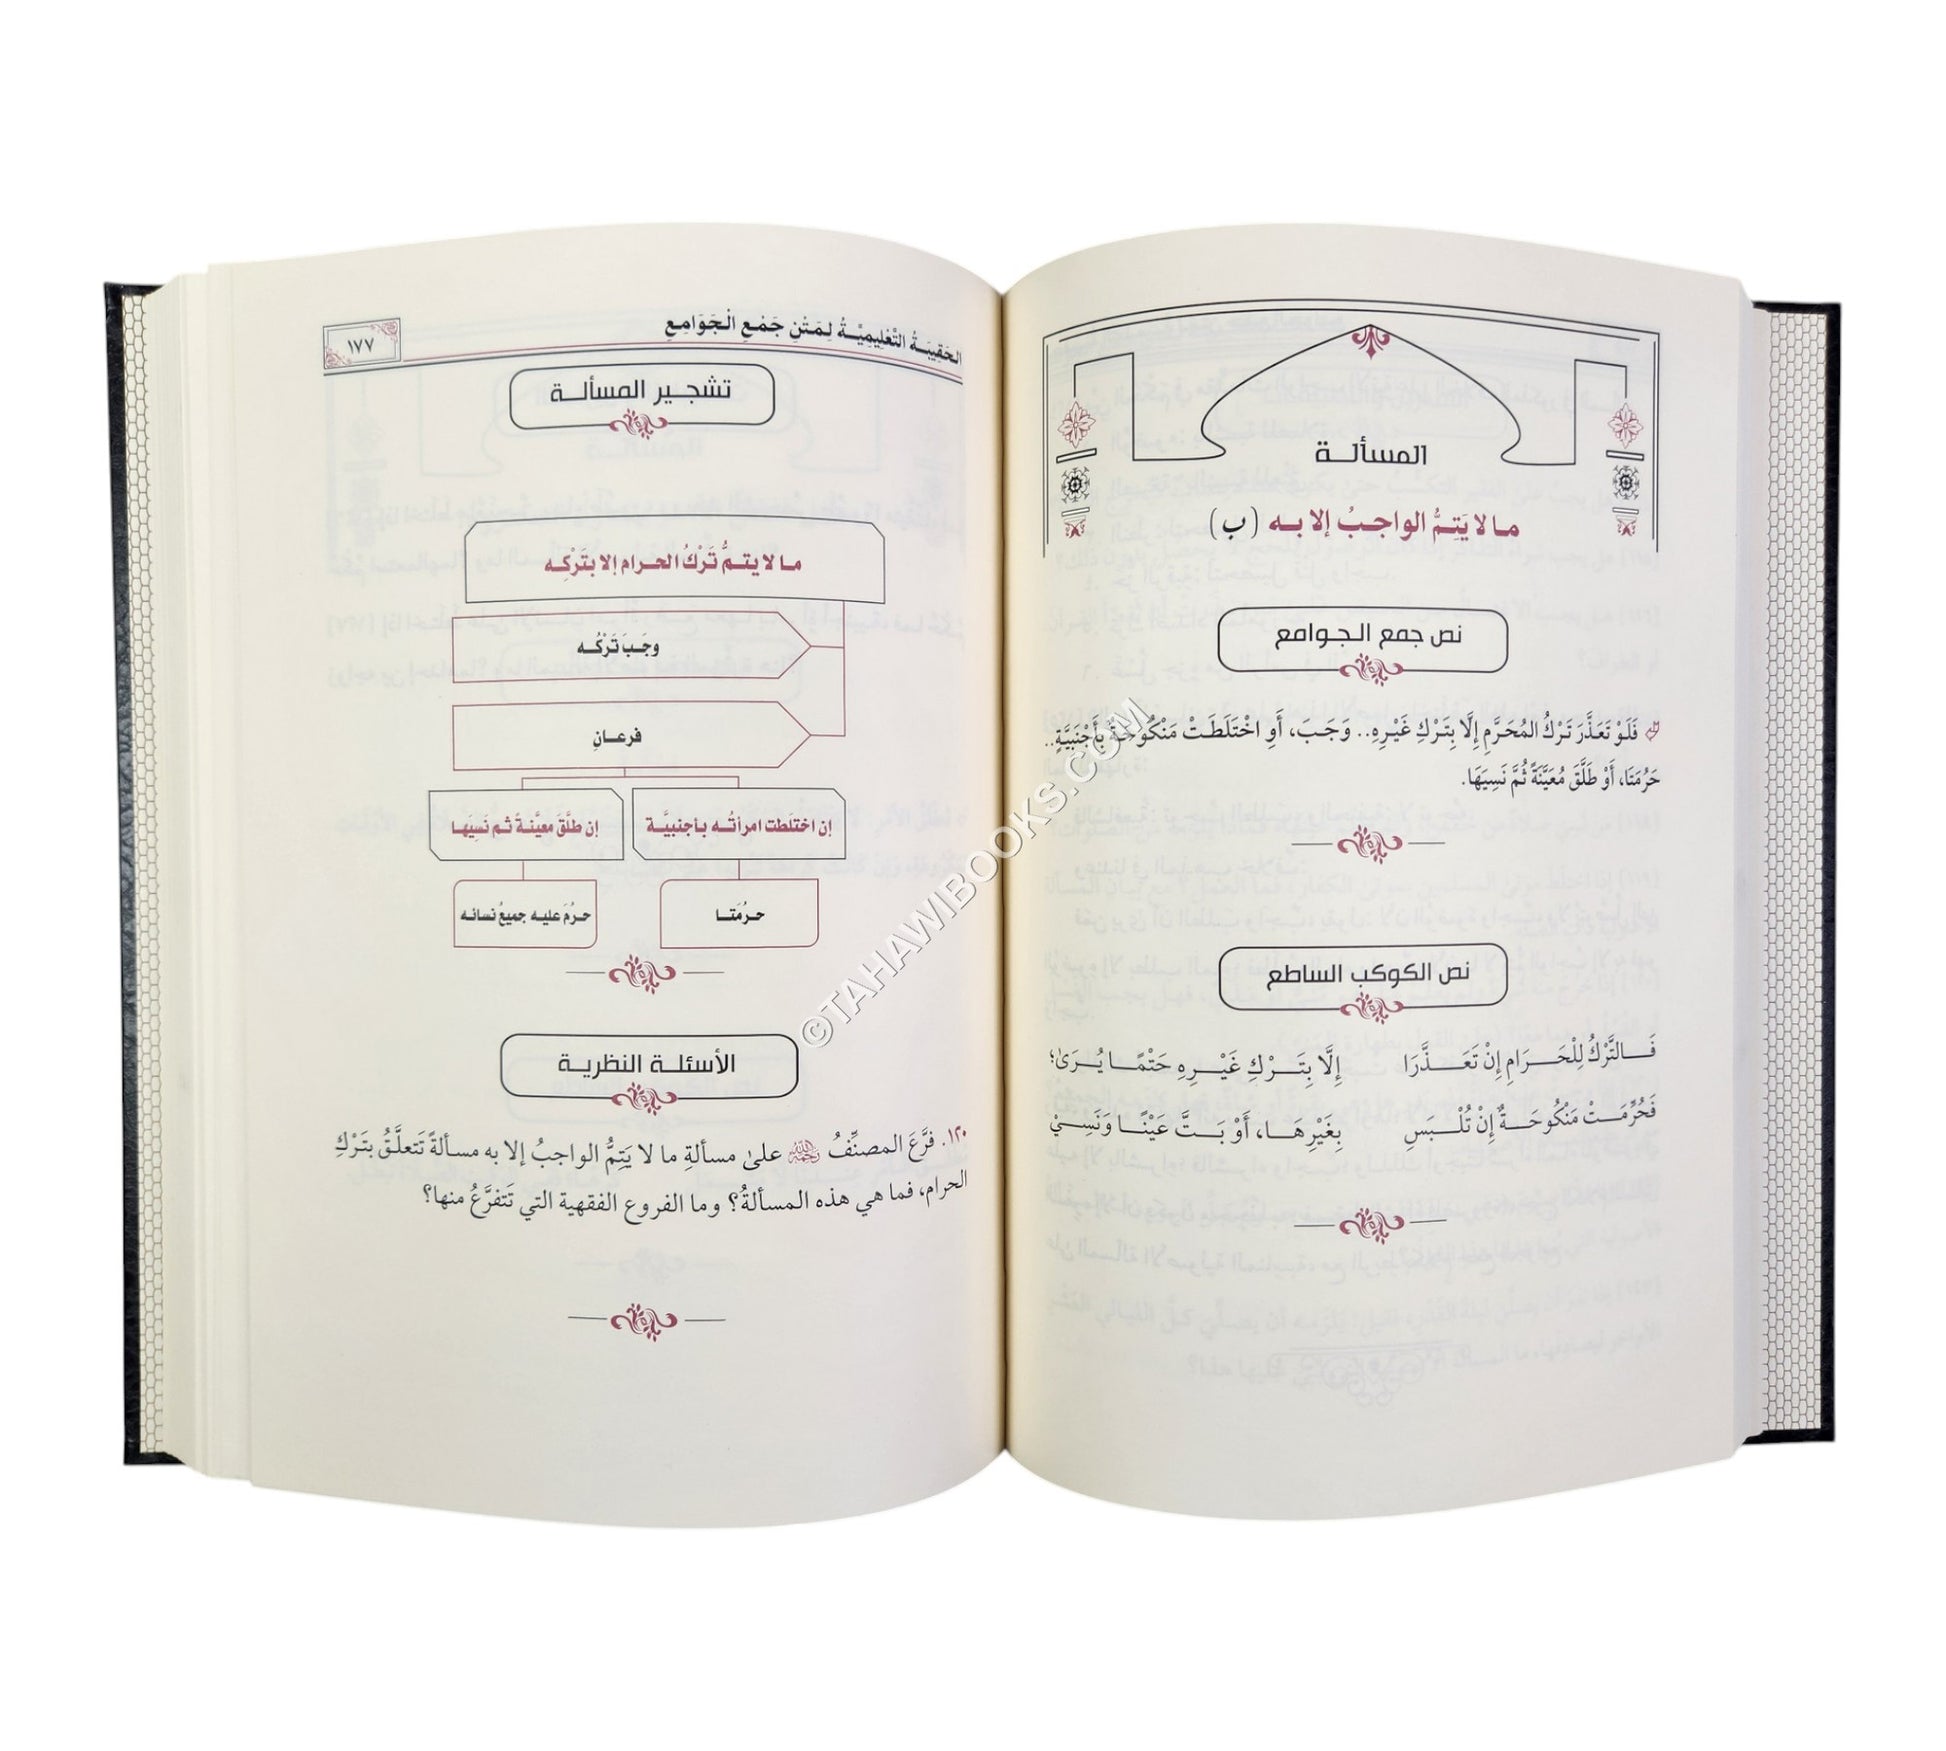 المسألـة
ما لا يَتِمُّ الواجبُ إلا به (ب)
نص جمع الجوامع
فَلَوْ تَعَذَّرَ تَرْكُ المُحَرَّمِ إِلَّا بِتَرْكِ غَيْرِهِ.. وَجَبَ، أَوِ اخْتَلَطَتْ مَنْكُوحَةٌ بِأَجْنَبِيَّةٍ..
حَرُمَتَا، أَوْ طَلَّقَ مُعَيَّنَةً ثُمَّ نَسِيَهَا.
نص الكوكب الساطع
فَـالتَّرْكُ لِلْحَـرَامِ إِنْ تَعَـذَّرَا إِلَّا بِتَـرْكِ غَيْـرِهِ حَتْمًـا يُـرَىٰ؛
فَحُرِّمَـتْ مَنْكُوحَـةٌ إِنْ تُلْـبَسِ بِغَيْرِهَـا، أَوْ بَـتَّ عَيْنًـا وَنَسِيْ
الحَقِيبَـةُ التَّعْلِيمِيَّـةُ لِمَتْنِ جَمْعِ الْجَوَامِعِ
١٧٧
تشجـير المسألـة
ما لا يتـمُّ تَرْكُ الحرام إلا بتَرْكِـه
وجَبَ تَرْكُه
فرعـانِ
إن اختلَطت امرأتُـه بأجنبيَّـة
إن طلَّقَ معيَّنـةً ثم نَسِيَها
حرُمَتا
حرُمَ عليـه جميعُ نسائـه
الأسئلـة النظريـة
١٢٠. فرَّعَ المصنِّفُ علىٰ مسألةِ ما لا يَتِمُّ الواجبُ إلا به مسألةً تَتعلَّقُ بتَرْكِ
الحرام، فما هي هذه المسألةُ؟ وما الفروع الفقهية التي تَتفرَّعُ منها؟
©TAHAWIBOOKS.COM